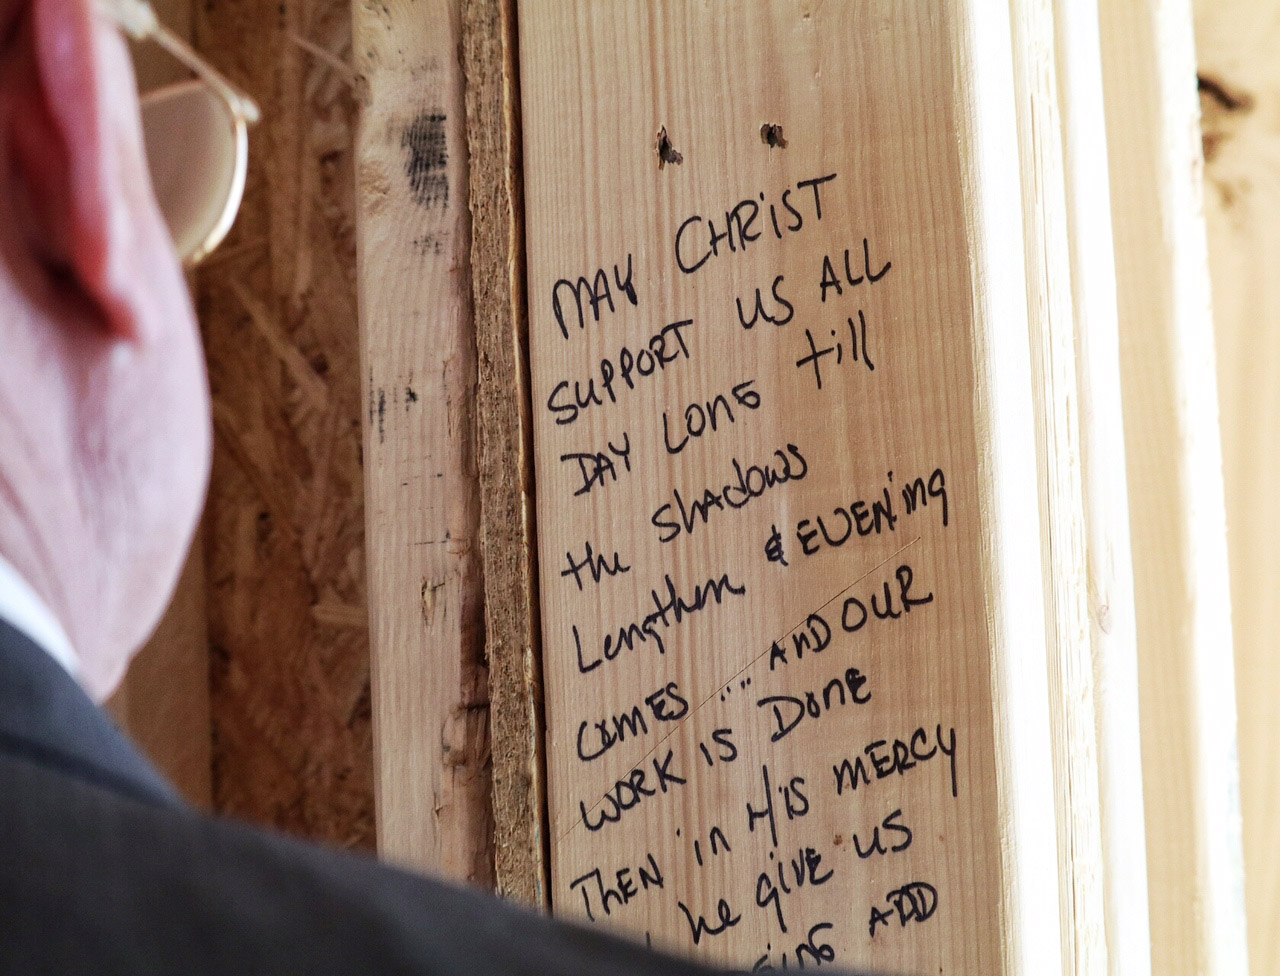 MAY CHRIST
SUPPORT US ALL
DAY LONG till
the shadows
Lengthen & EVENing
COMES ... AND OUR
WORK IS DONE
THEN in HIS MERCY
he give US
ADD